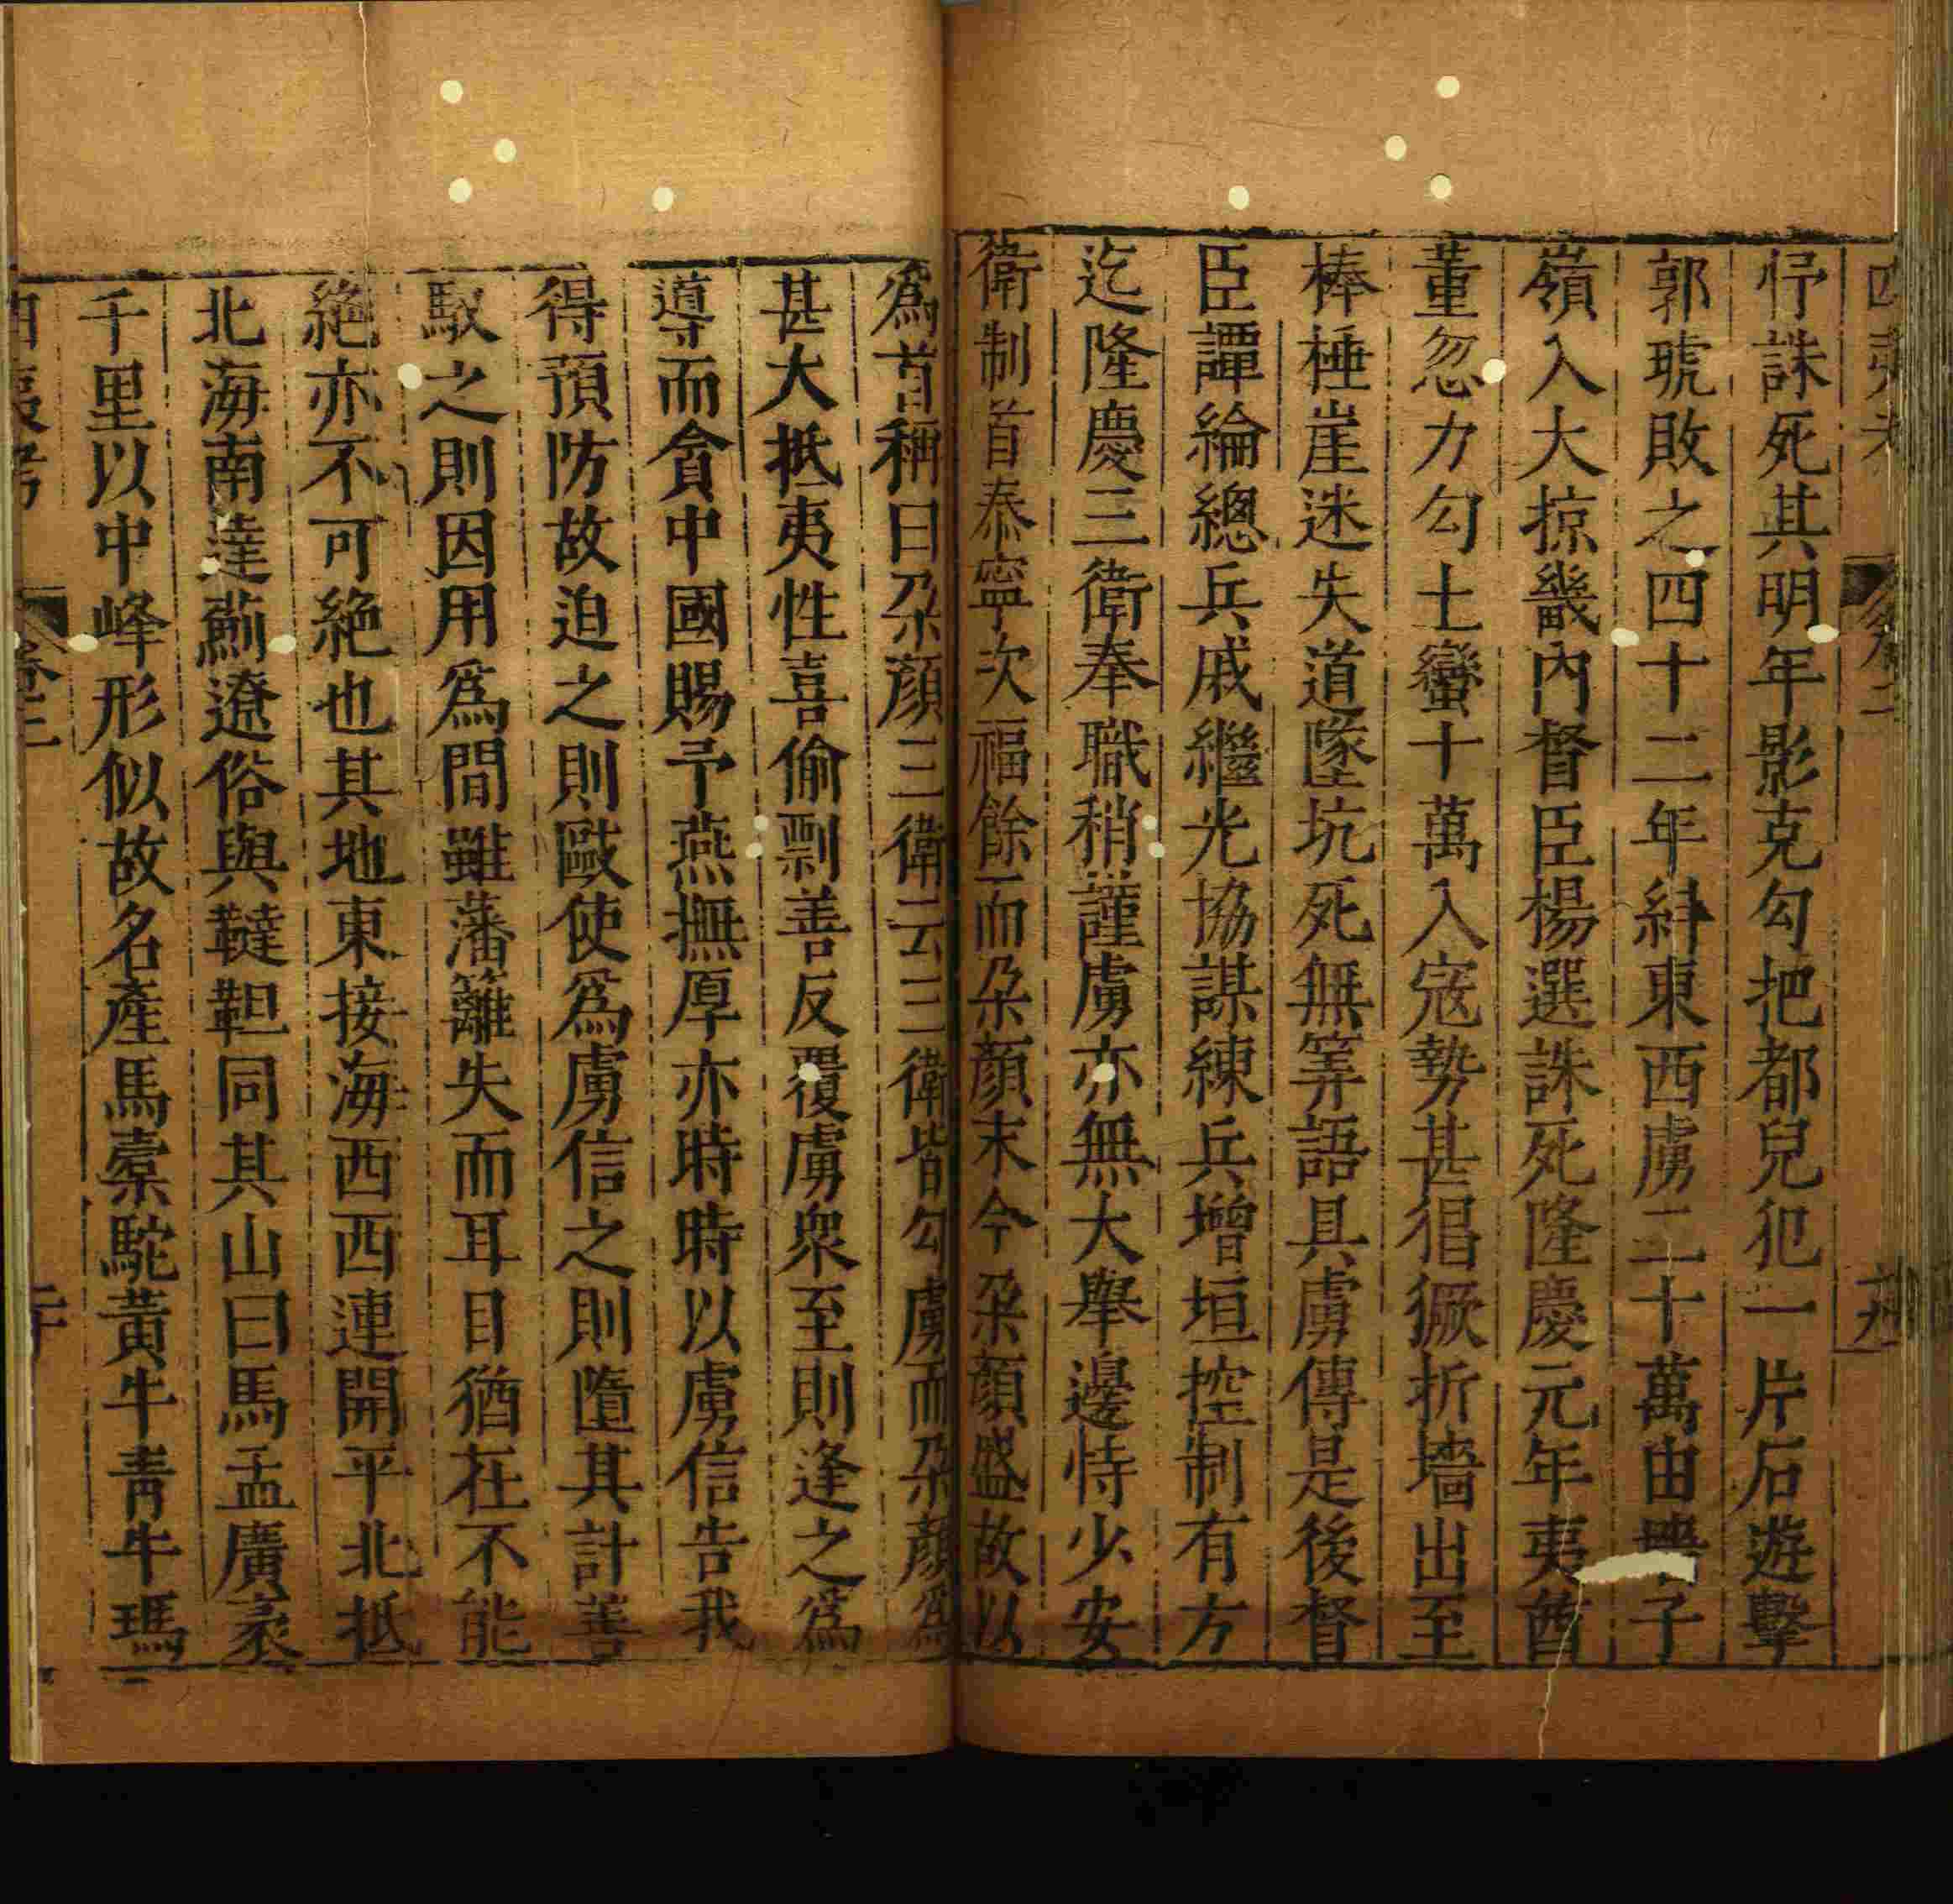 忬誅死其明年影克勾把都兒犯一片石遊擊
郭琥敗之四十二年糾東西虜二十萬由子
嶺入大掠畿內督臣楊選誅死隆慶元年夷酋
董忽力勾土蠻十萬入寇勢甚猖獗折墻出至
棒棰崖迷失道墜坑死無筭語具虜傳是後督
臣譚綸總兵戚繼光協謀練兵增垣控制有方
迄隆慶三衛奉職稍謹虜亦無大舉邊恃少安
衛制首泰寧次福餘而朵顏末今朵顏盛故以
為首稱曰朵顏三衛云三衛皆勾虜而朵顏為
甚大抵夷性喜偷剽善反覆虜衆至則逢之為
導而貪中國賜予燕撫厚亦時時以虜信告我
得預防故迫之則毆使為虜信之則墮其計善
馭之則因用為間雖藩籬失而耳目猶在不能
絕亦不可絕也其地東接海西西連開平北抵
北海南達薊遼俗與韃靼同其山曰馬孟廣袤
千里以中峰形似故名產馬橐駝黃牛青牛瑪
四夷考
卷二
二十